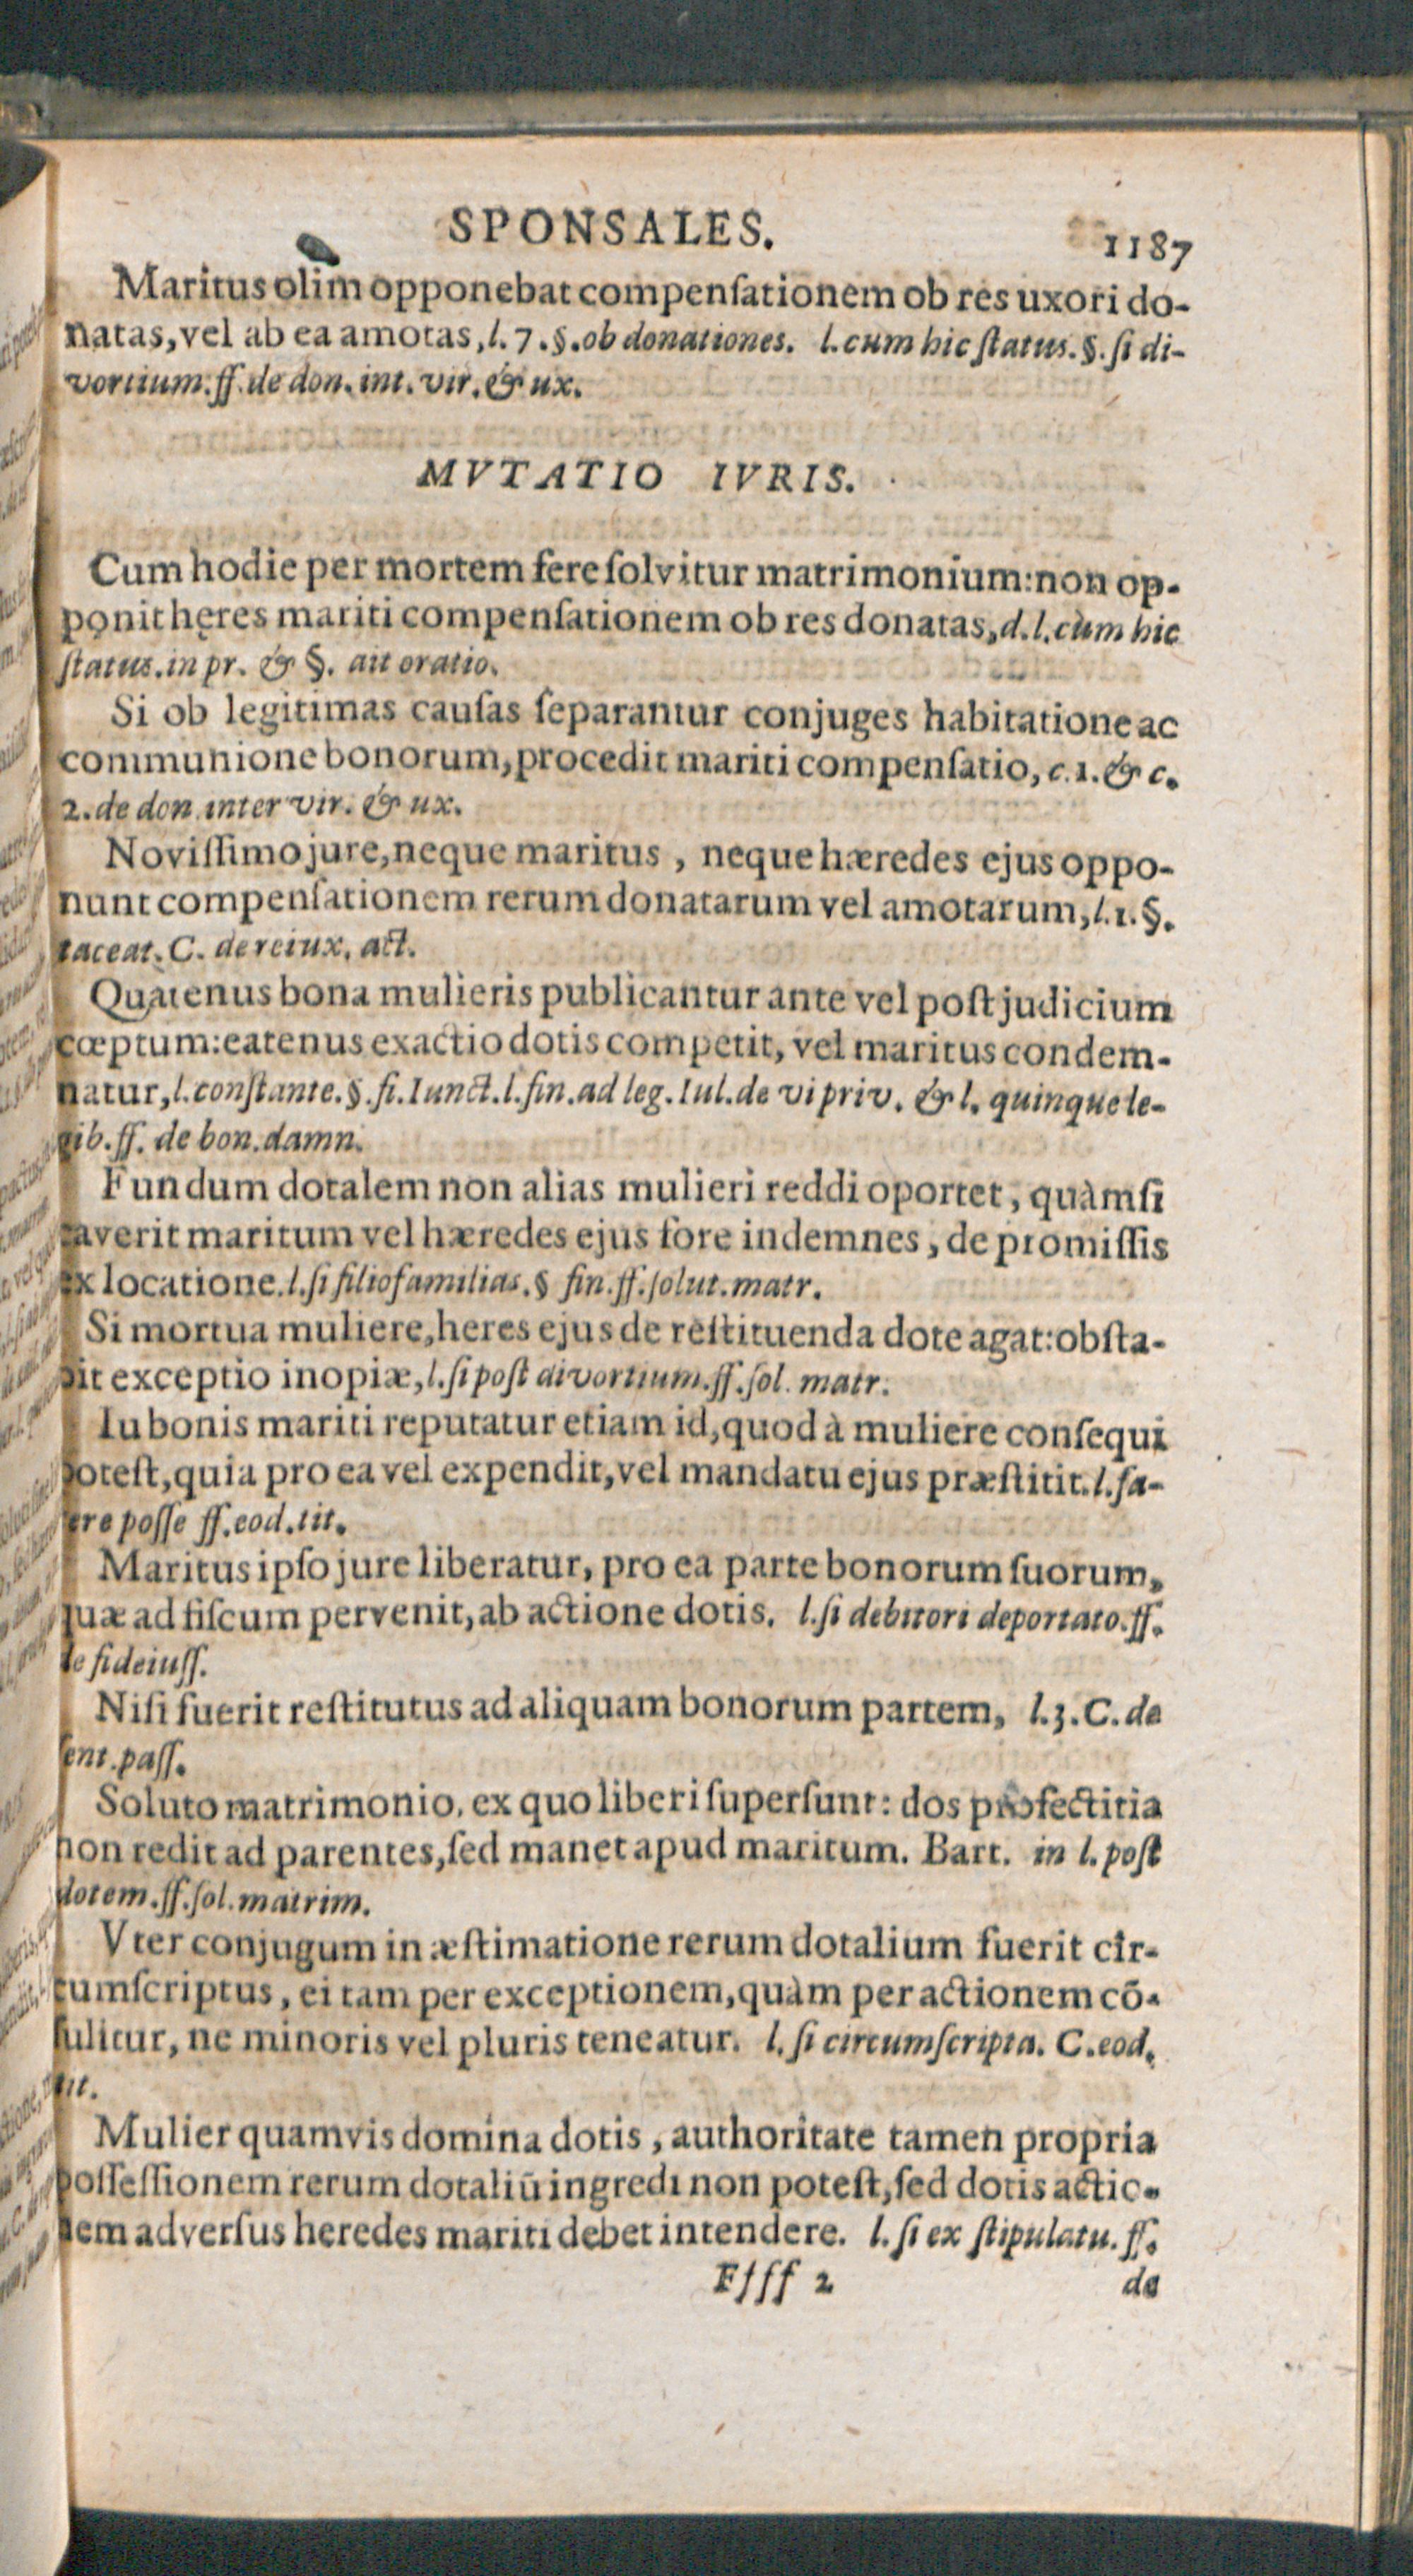 SPONSALES.
1187
Maritus olim opponebat compenſationem ob res uxori do-
natas, vel ab ea amotas, l. 7. §. ob donationes. l. cum hic ſtatus. §. ſi di-
vortium. ff. de don. int. vir. & ux.
MVTATIO IVRIS.
Cum hodie per mortem fere ſolvitur matrimonium: non op-
ponit hęres mariti compenſationem ob res donatas, d. l. cùm hic
ſtatus. in pr. & §. ait oratio.
Si ob legitimas cauſas ſeparantur conjuges habitatione ac
communione bonorum, procedit mariti compenſatio, c. 1. & c.
2. de don. inter vir. & ux.
Noviſſimo jure, neque maritus, neque hæredes ejus oppo-
nunt compenſationem rerum donatarum vel amotarum, l. 1. §.
taceat. C. de rei ux. act.
Quatenus bona mulieris publicantur ante vel poſt judicium
cœptum: eatenus exactio dotis competit, vel maritus condem-
natur, l. conſtante. §. fi. Iunct. l. fin. ad leg. Iul. de vi priv. & l. quinque le-
gib. ff. de bon. damn.
Fundum dotalem non alias mulieri reddi oportet, quàm ſi
caverit maritum vel hæredes ejus fore indemnes, de promiſſis
ex locatione. l. ſi filiofamilias. § fin. ff. ſolut. matr.
Si mortua muliere, heres ejus de reſtituenda dote agat: obſta-
bit exceptio inopiæ, l. ſi poſt divortium. ff. ſol. matr.
Iu bonis mariti reputatur etiam id, quod à muliere conſequi
poteſt, quia pro ea vel expendit, vel mandatu ejus præſtitit. l. fa-
cere poſſe ff. eod. tit.
Maritus ipſo jure liberatur, pro ea parte bonorum ſuorum,
quæ ad fiſcum pervenit, ab actione dotis. l. ſi debitori deportato. ff.
de fideiuſſ.
Niſi fuerit reſtitutus ad aliquam bonorum partem, l. 3. C. de
ſent. paſſ.
Soluto matrimonio, ex quo liberi ſuperſunt: dos profectitia
non redit ad parentes, ſed manet apud maritum. Bart. in l. poſt
dotem. ff. ſol. matrim.
Vter conjugum in æſtimatione rerum dotalium fuerit cir-
cumſcriptus, ei tam per exceptionem, quàm per actionem cõ-
ſulitur, ne minoris vel pluris teneatur. l. ſi circumſcripta. C. eod.
tit.
Mulier quamvis domina dotis, authoritate tamen propria
poſſeſſionem rerum dotaliũ ingredi non poteſt, ſed dotis actio-
nem adverſus heredes mariti debet intendere. l. ſi ex ſtipulatu. ff.
Ffff 2
de